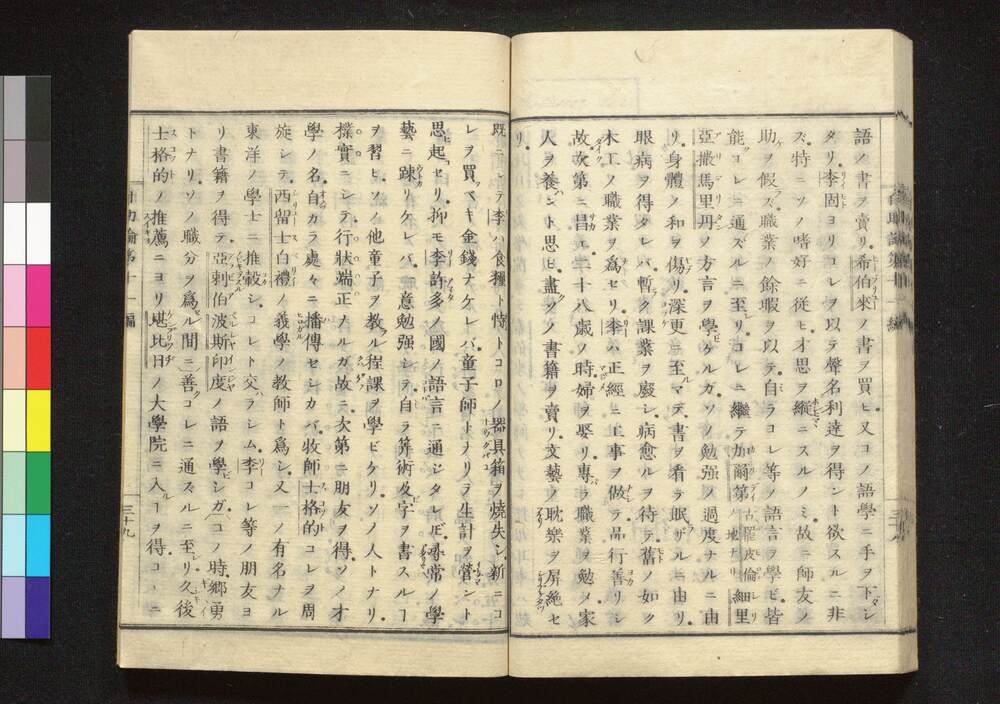 語ノ書ヲ賣リ希伯來ノ書ヲ買ヒ又コノ語學ニ手ヲ下シ
タリ李固ヨリコレヲ以テ聲名利達ヲ得ント欲スルニ非
ズ特ニソノ嗜好ニ從ヒ才思ヲ縱ニスルノミ故ニ師友ノ
助ヲ假ラズ職業ノ餘暇ヲ以テ自ラコレ等ノ語言ヲ學ビ皆
能クコレニ通ズルニ至リコレニ繼テ加爾第古羅皮倫ノ地ナリ細里
亞撒馬里丹ノ方言ヲ學ビケルガソノ勉强ノ過度ナルニ由
リ身體ノ和ヲ傷リ深更ニ至ルマデ書ヲ看テ眠ラザルニ由リ
眼病ヲ得タレバ暫ク課業ヲ廢シ病愈ルヲ待テ舊ノ如ク
木工ノ職業ヲ爲セリ李ハ正經ニ工事ヲ做テ品行善リシ
故次第ニ昌エ二十八歲ノ時婦ヲ娶リ專ラ職業ヲ勉メ家
人ヲ養ハント思ヒ盡クソノ書籍ヲ賣リ文藝ノ耽樂ヲ屏絶セ
リ
既ニシテ李ハ食糧ト恃トコロノ器具箱ヲ燒失シ新ニコ
レヲ買フベキ金錢ナケレバ童子師トナリテ生計ヲ營ント
思起セリ抑モ李許多ノ國ノ語言ニ通ジタレドモ尋常ノ學
藝ニ踈カリケレバ意勉强シテ自ラ算術及ビ字ヲ書スルヿ
ヲ習ヒソノ他童子ヲ教フル程課ヲ學ビケリソノ人トナリ
樸實ニシテ行狀端正ノナルガ故ニ次第ニ朋友ヲ得ソノ才
學ノ名自カラ處々ニ播傳セシカバ牧師士格的コレヲ周
旋シテ西留士白禮ノ義學ノ教師ト爲シ又一ノ有名ナル
東洋ノ學士ニ推轂シコレト交ハラシム李コレ等ノ朋友ヨ
リ書籍ヲ得テ亞剌伯波斯印度ノ語ヲ學ビシガコノ時鄉勇
トナリソノ職分ヲ爲セル間ニ善クコレニ通ズルニ至レリ久後
士格的ノ推薦ニヨリ堪比日ノ大學院ニ入ルヿヲ得コヽニ
三十九